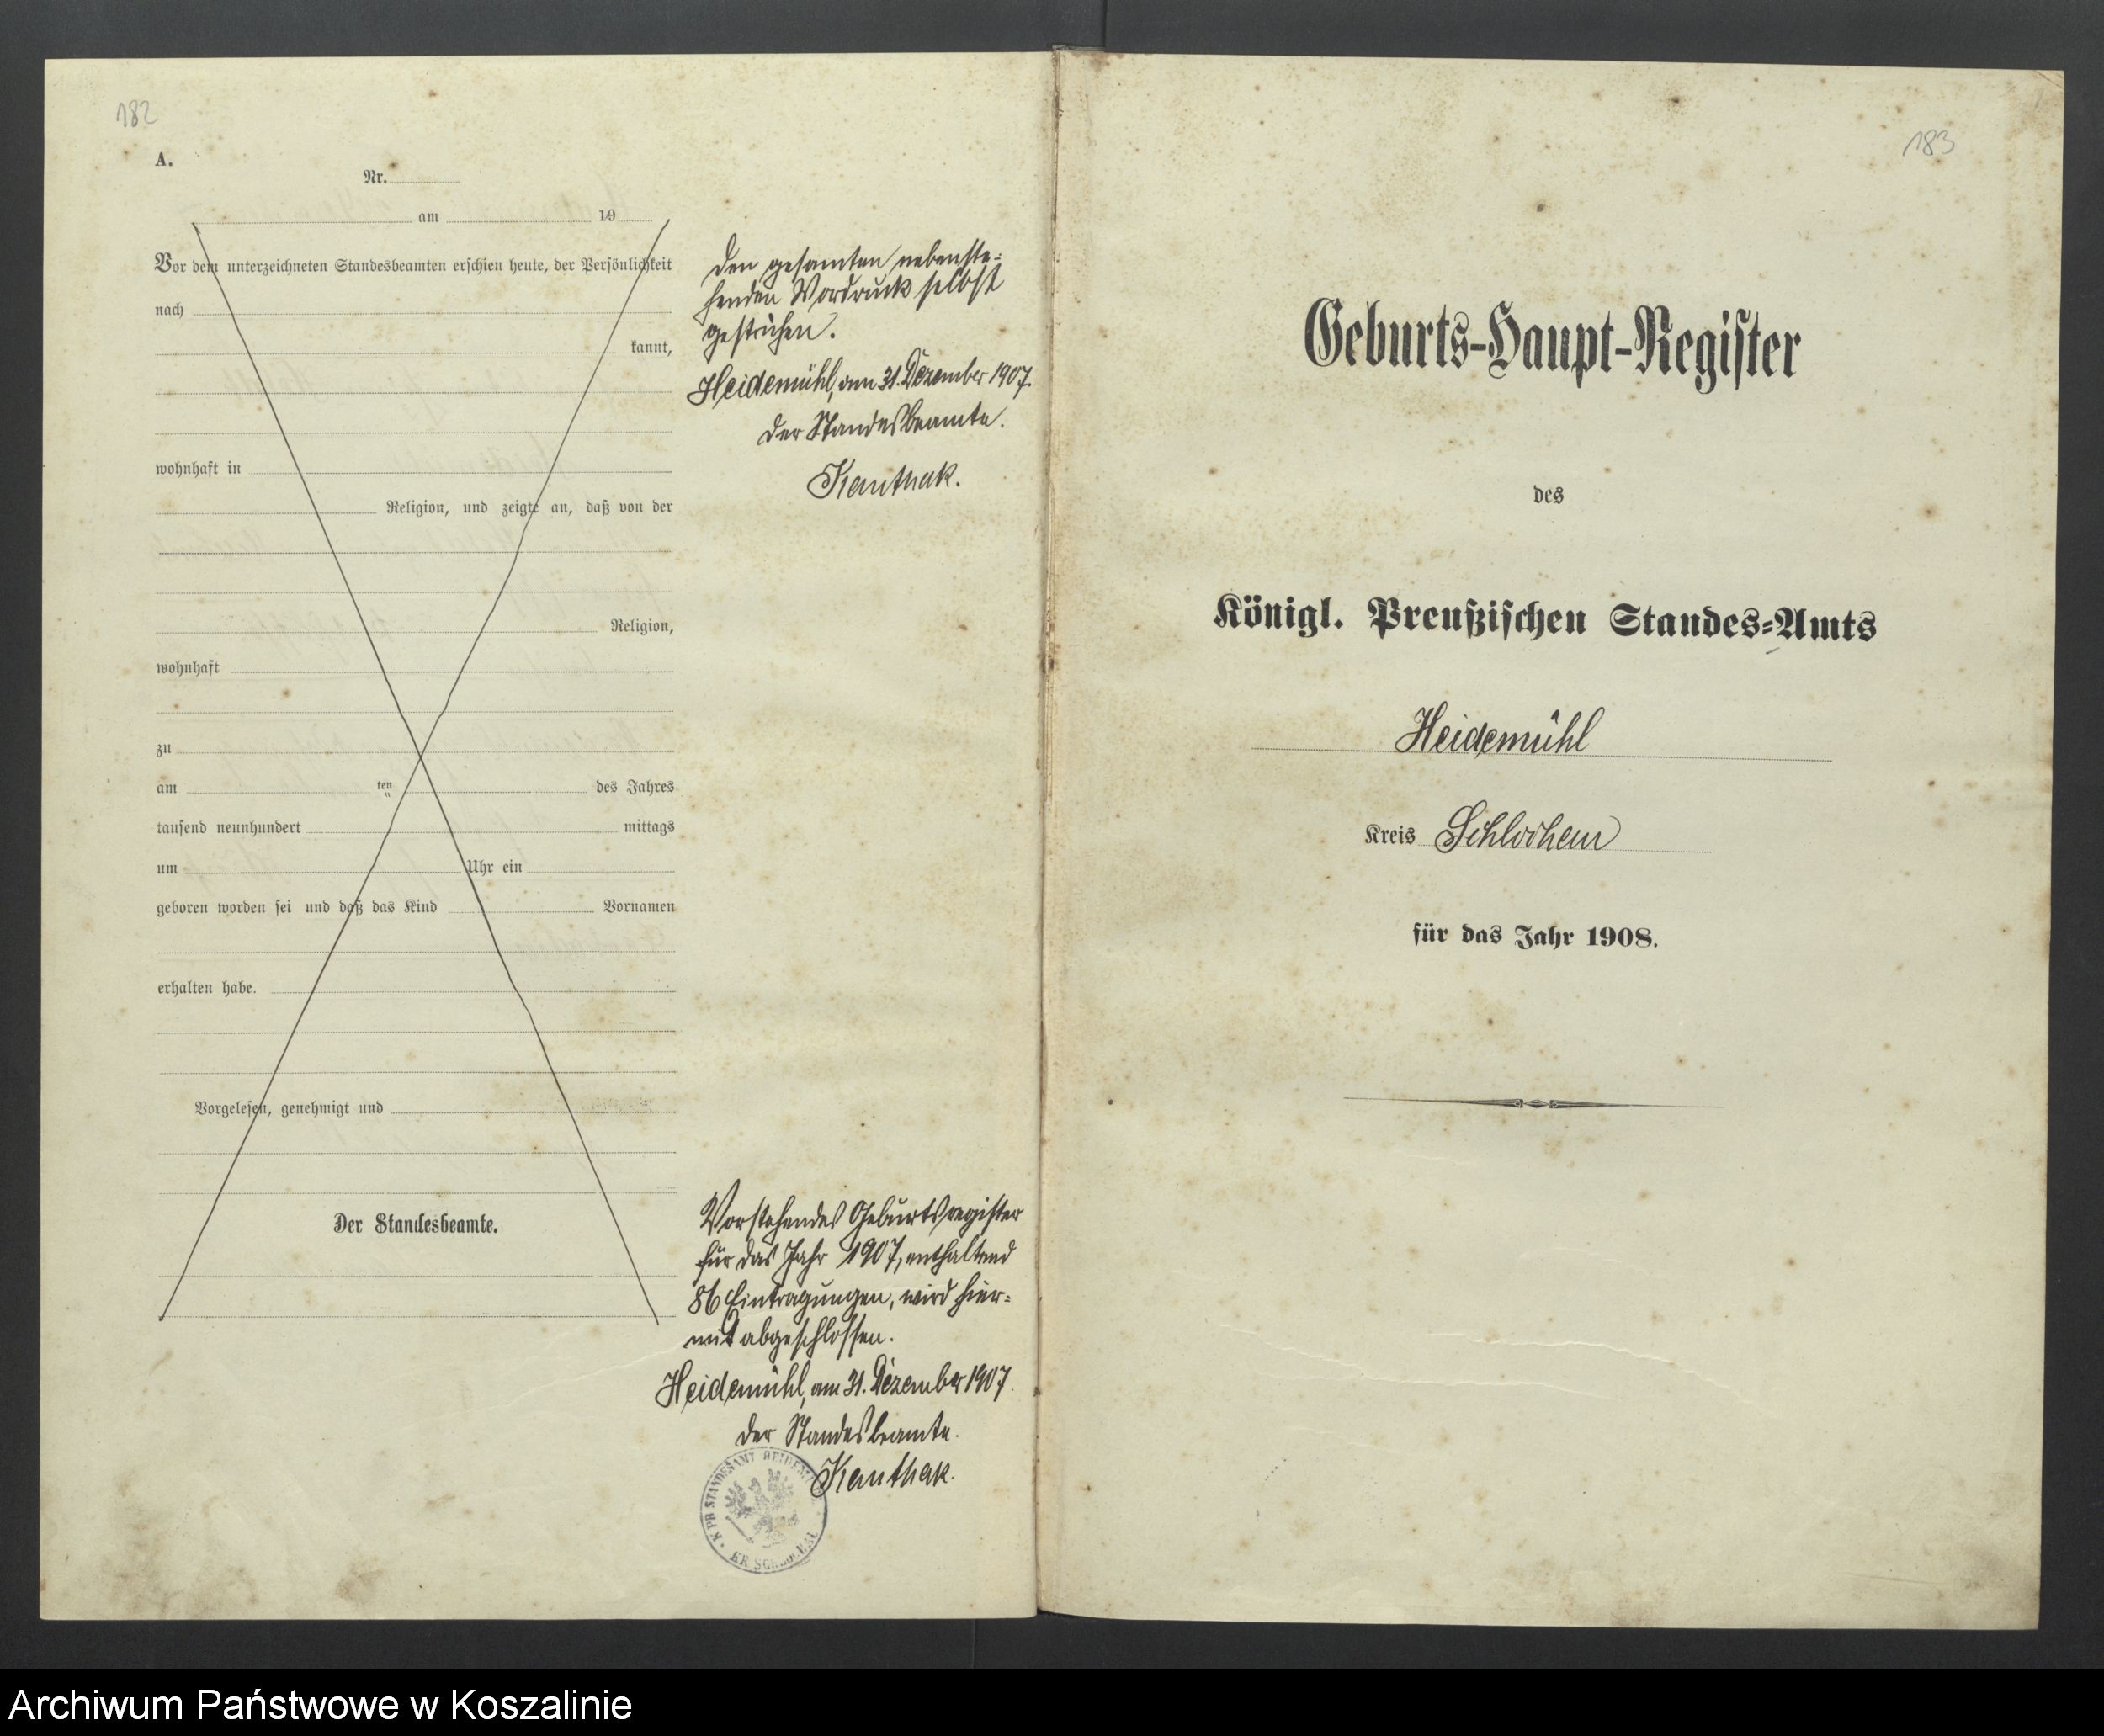 182
A.
Nr.
am 19
Vor dem unterzeichneten Standesbeamten erschien heute, der Persönlichkeit
nach
kannt,
wohnhaft in
Religion, und zeigte an, daß von der
Religion,
wohnhaft
zu
am ten des Jahres
tausend neunhundert mittags
um Uhr ein
geboren worden sei und daß das Kind Vornamen
erhalten habe.
Vorgelesen, genehmigt und
Der Standesbeamte.
Den gesamten nebenste-
henden Vordruck selbst
gestrichen.
Heidemühl, am 31. Dezember 1907.
Der Standesbeamte.
Kanthak.
Vorstehendes Geburtsregister
für das Jahr 1907, enthaltend
86 Eintragungen, wird hier-
mit abgeschlossen.
Heidemühl, am 31. Dezember 1907.
Der Standesbeamte.
Kanthak.
K. PR. STANDESAMT
183
Geburts-Haupt-Register
des
Königl. Preußischen Standes-Amts
Heidemühl
Kreis Schlochau
für das Jahr 1908.
Archiwum Państwowe w Koszalinie